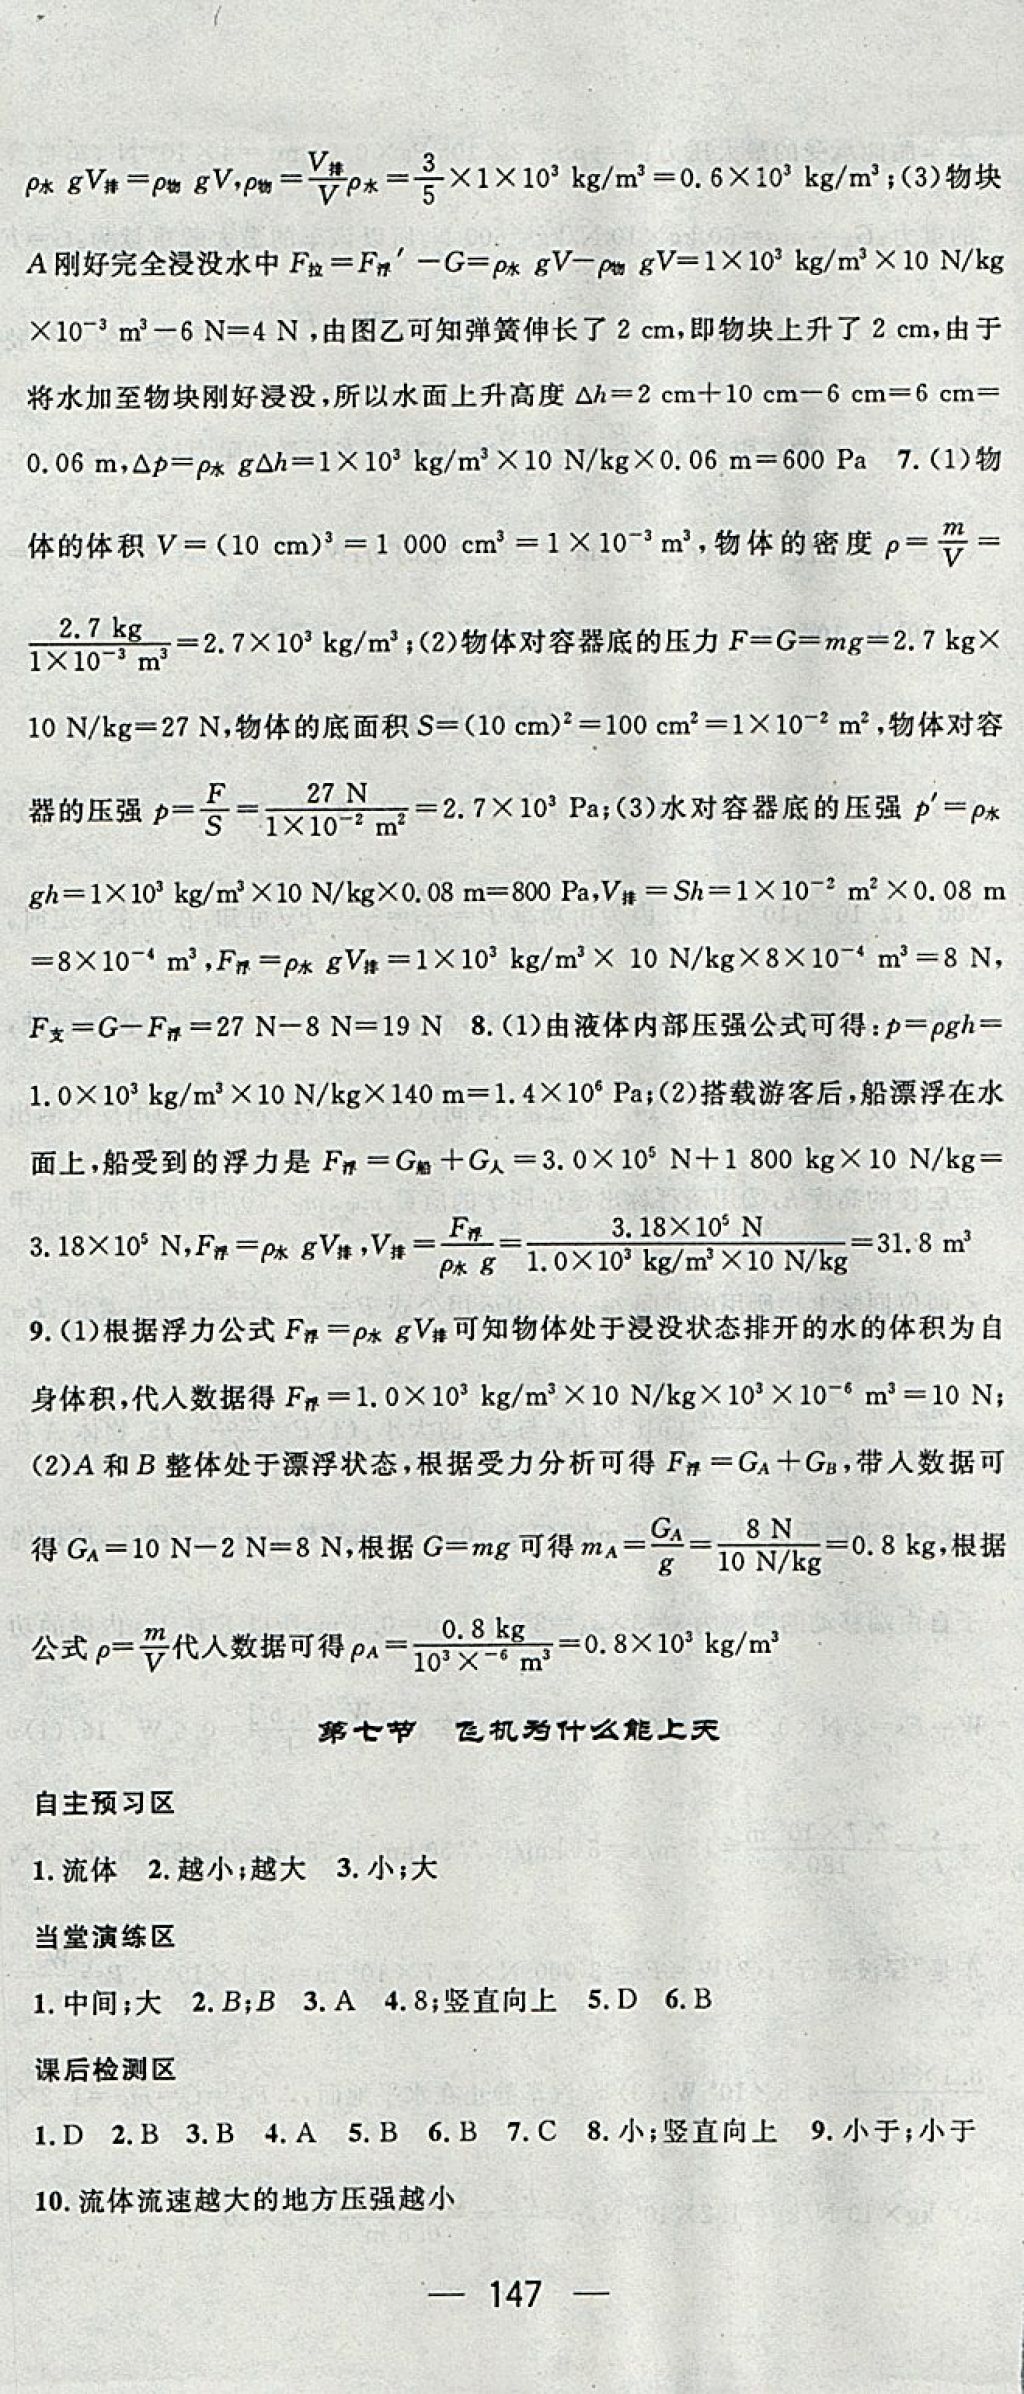 ρ水 gV排=ρ物 gV,ρ物=V排/Vρ水=3/5×1×10³ kg/m³=0.6×10³ kg/m³;(3)物块
A 刚好完全浸没水中 F拉=F浮′-G=ρ水 gV-ρ物 gV=1×10³ kg/m³×10 N/kg
×10⁻³ m³-6 N=4 N,由图乙可知弹簧伸长了 2 cm,即物块上升了 2 cm,由于
将水加至物块刚好浸没,所以水面上升高度 Δh=2 cm+10 cm-6 cm=6 cm=
0.06 m,Δp=ρ水 gΔh=1×10³ kg/m³×10 N/kg×0.06 m=600 Pa 7.(1)物
体的体积 V=(10 cm)³=1 000 cm³=1×10⁻³ m³,物体的密度 ρ=m/V=
2.7 kg/1×10⁻³ m³=2.7×10³ kg/m³;(2)物体对容器底的压力 F=G=mg=2.7 kg×
10 N/kg=27 N,物体的底面积 S=(10 cm)²=100 cm²=1×10⁻² m²,物体对容
器的压强 p=F/S=27 N/1×10⁻² m²=2.7×10³ Pa;(3)水对容器底的压强 p′=ρ水
gh=1×10³ kg/m³×10 N/kg×0.08 m=800 Pa,V排=Sh=1×10⁻² m²×0.08 m
=8×10⁻⁴ m³,F浮=ρ水 gV排=1×10³ kg/m³× 10 N/kg×8×10⁻⁴ m³=8 N,
F支=G-F浮=27 N-8 N=19 N 8.(1)由液体内部压强公式可得:p=ρgh=
1.0×10³ kg/m³×10 N/kg×140 m=1.4×10⁶ Pa;(2)搭载游客后,船漂浮在水
面上,船受到的浮力是 F浮=G船+G人=3.0×10⁵ N+1 800 kg×10 N/kg=
3.18×10⁵ N,F浮=ρ水 gV排,V排=F浮/ρ水 g=3.18×10⁵ N/1.0×10³ kg/m³×10 N/kg=31.8 m³
9.(1)根据浮力公式 F浮=ρ水 gV排可知物体处于浸没状态排开的水的体积为自
身体积,代入数据得 F浮=1.0×10³ kg/m³×10 N/kg×10³×10⁻⁶ m³=10 N;
(2)A 和 B 整体处于漂浮状态,根据受力分析可得 F浮=GA+GB,带入数据可
得 GA=10 N-2 N=8 N,根据 G=mg 可得 mA=GA/g=8 N/10 N/kg=0.8 kg,根据
公式 ρ=m/V代入数据可得 ρA=0.8 kg/10³×⁻⁶ m³=0.8×10³ kg/m³
第七节 飞机为什么能上天
自主预习区
1.流体 2.越小;越大 3.小;大
当堂演练区
1.中间;大 2.B;B 3.A 4.8;竖直向上 5.D 6.B
课后检测区
1.D 2.B 3.B 4.A 5.B 6.B 7.C 8.小;竖直向上 9.小于;小于
10.流体流速越大的地方压强越小
— 147 —